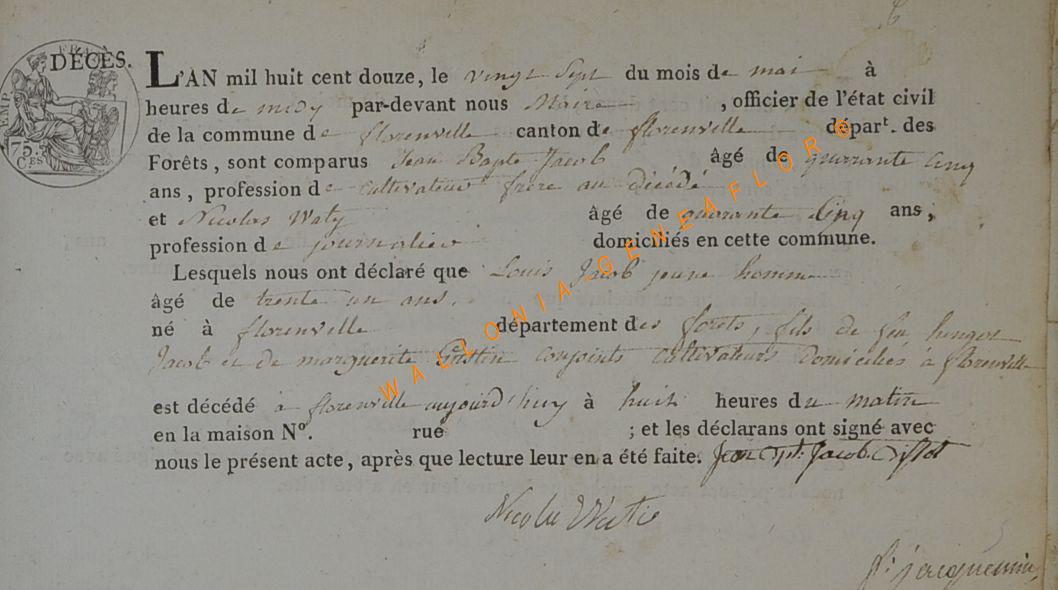 DÉCÈS.
L'AN mil huit cent douze, le vingt Sept du mois de mai à
heures de midy par-devant nous Maire , officier de l'état civil
de la commune de florenville canton de florenville épart. des
Forêts, sont comparus Jean Bapte Jacob âgé de quarante Cinq
ans, profession de cultivateur frère au décédé
et Nicolas Waty âgé de quarante Cinq ans,
profession de journalier domiciliés en cette commune.
Lesquels nous ont déclaré que Louis Jacob jeune homme
âgé de trente un ans.
né à florenville département des forets, fils de feu
Jacob et de marguerite conjoints cultivateurs Domiciliés à florenville
est décédé à florenville aujourd'huy à huit heures du matin
en la maison N°. rue ; et les déclarans ont signé avec
nous le présent acte, après que lecture leur en a été faite. Jean Jacob
Nicolas Watie
jacquemin
FRA
EMP
75. CES
WALLONIA-GENEAFLORE